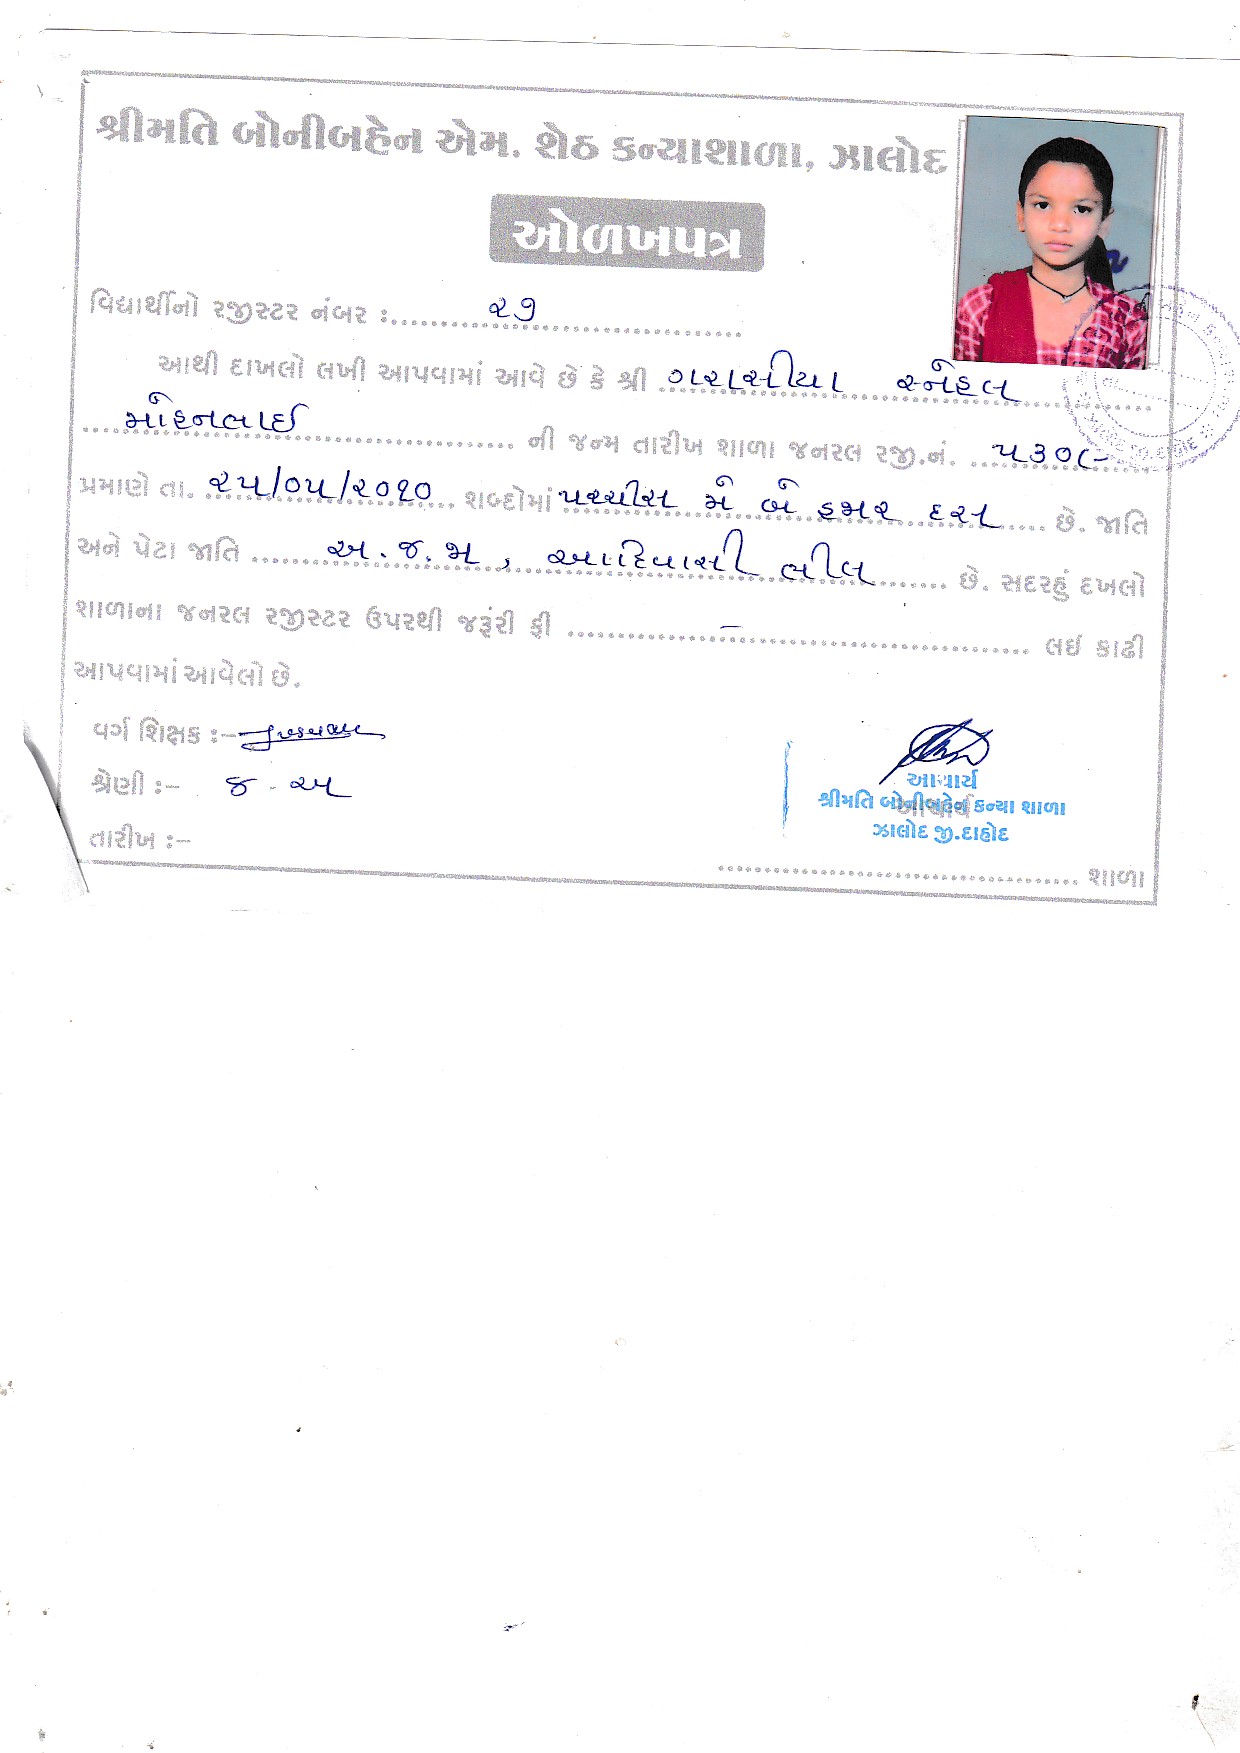 શ્રીમતિ બોનીબહેન એમ. શેઠ કન્યાશાળા, ઝાલોદ
ઓળખપત્ર
વિદ્યાર્થીનો રજીસ્ટર નંબર :. ૨૭
આથી દાખલો લખી આપવામાં આવે છે કે શ્રી ગરાસીયા સ્નેહલ
મોહનભાઈ ની જન્મ તારીખ શાળા જનરલ રજી.નં. ૫૩૦૮-
પ્રમાણે તા. ૨૫/૦૫/૨૦૧૦ શબ્દોમાં પચ્ચીસ મે બે હજાર દસ છે. જાતિ
અને પેટા જાતિ અ.જ.જા, આદિવાસી ભીલ છે. સદરહું દખલો
શાળાના જનરલ રજીસ્ટર ઉપરથી જરૂંરી ફી – લઈ કાઢી
આપવામાં આવેલો છે.
વર્ગ શિક્ષક :-
શ્રેણી :- ૪ - અ
તારીખ :-
આચાર્ય
શ્રીમતિ બોનીબહેન કન્યા શાળા
ઝાલોદ જી.દાહોદ
શાળા